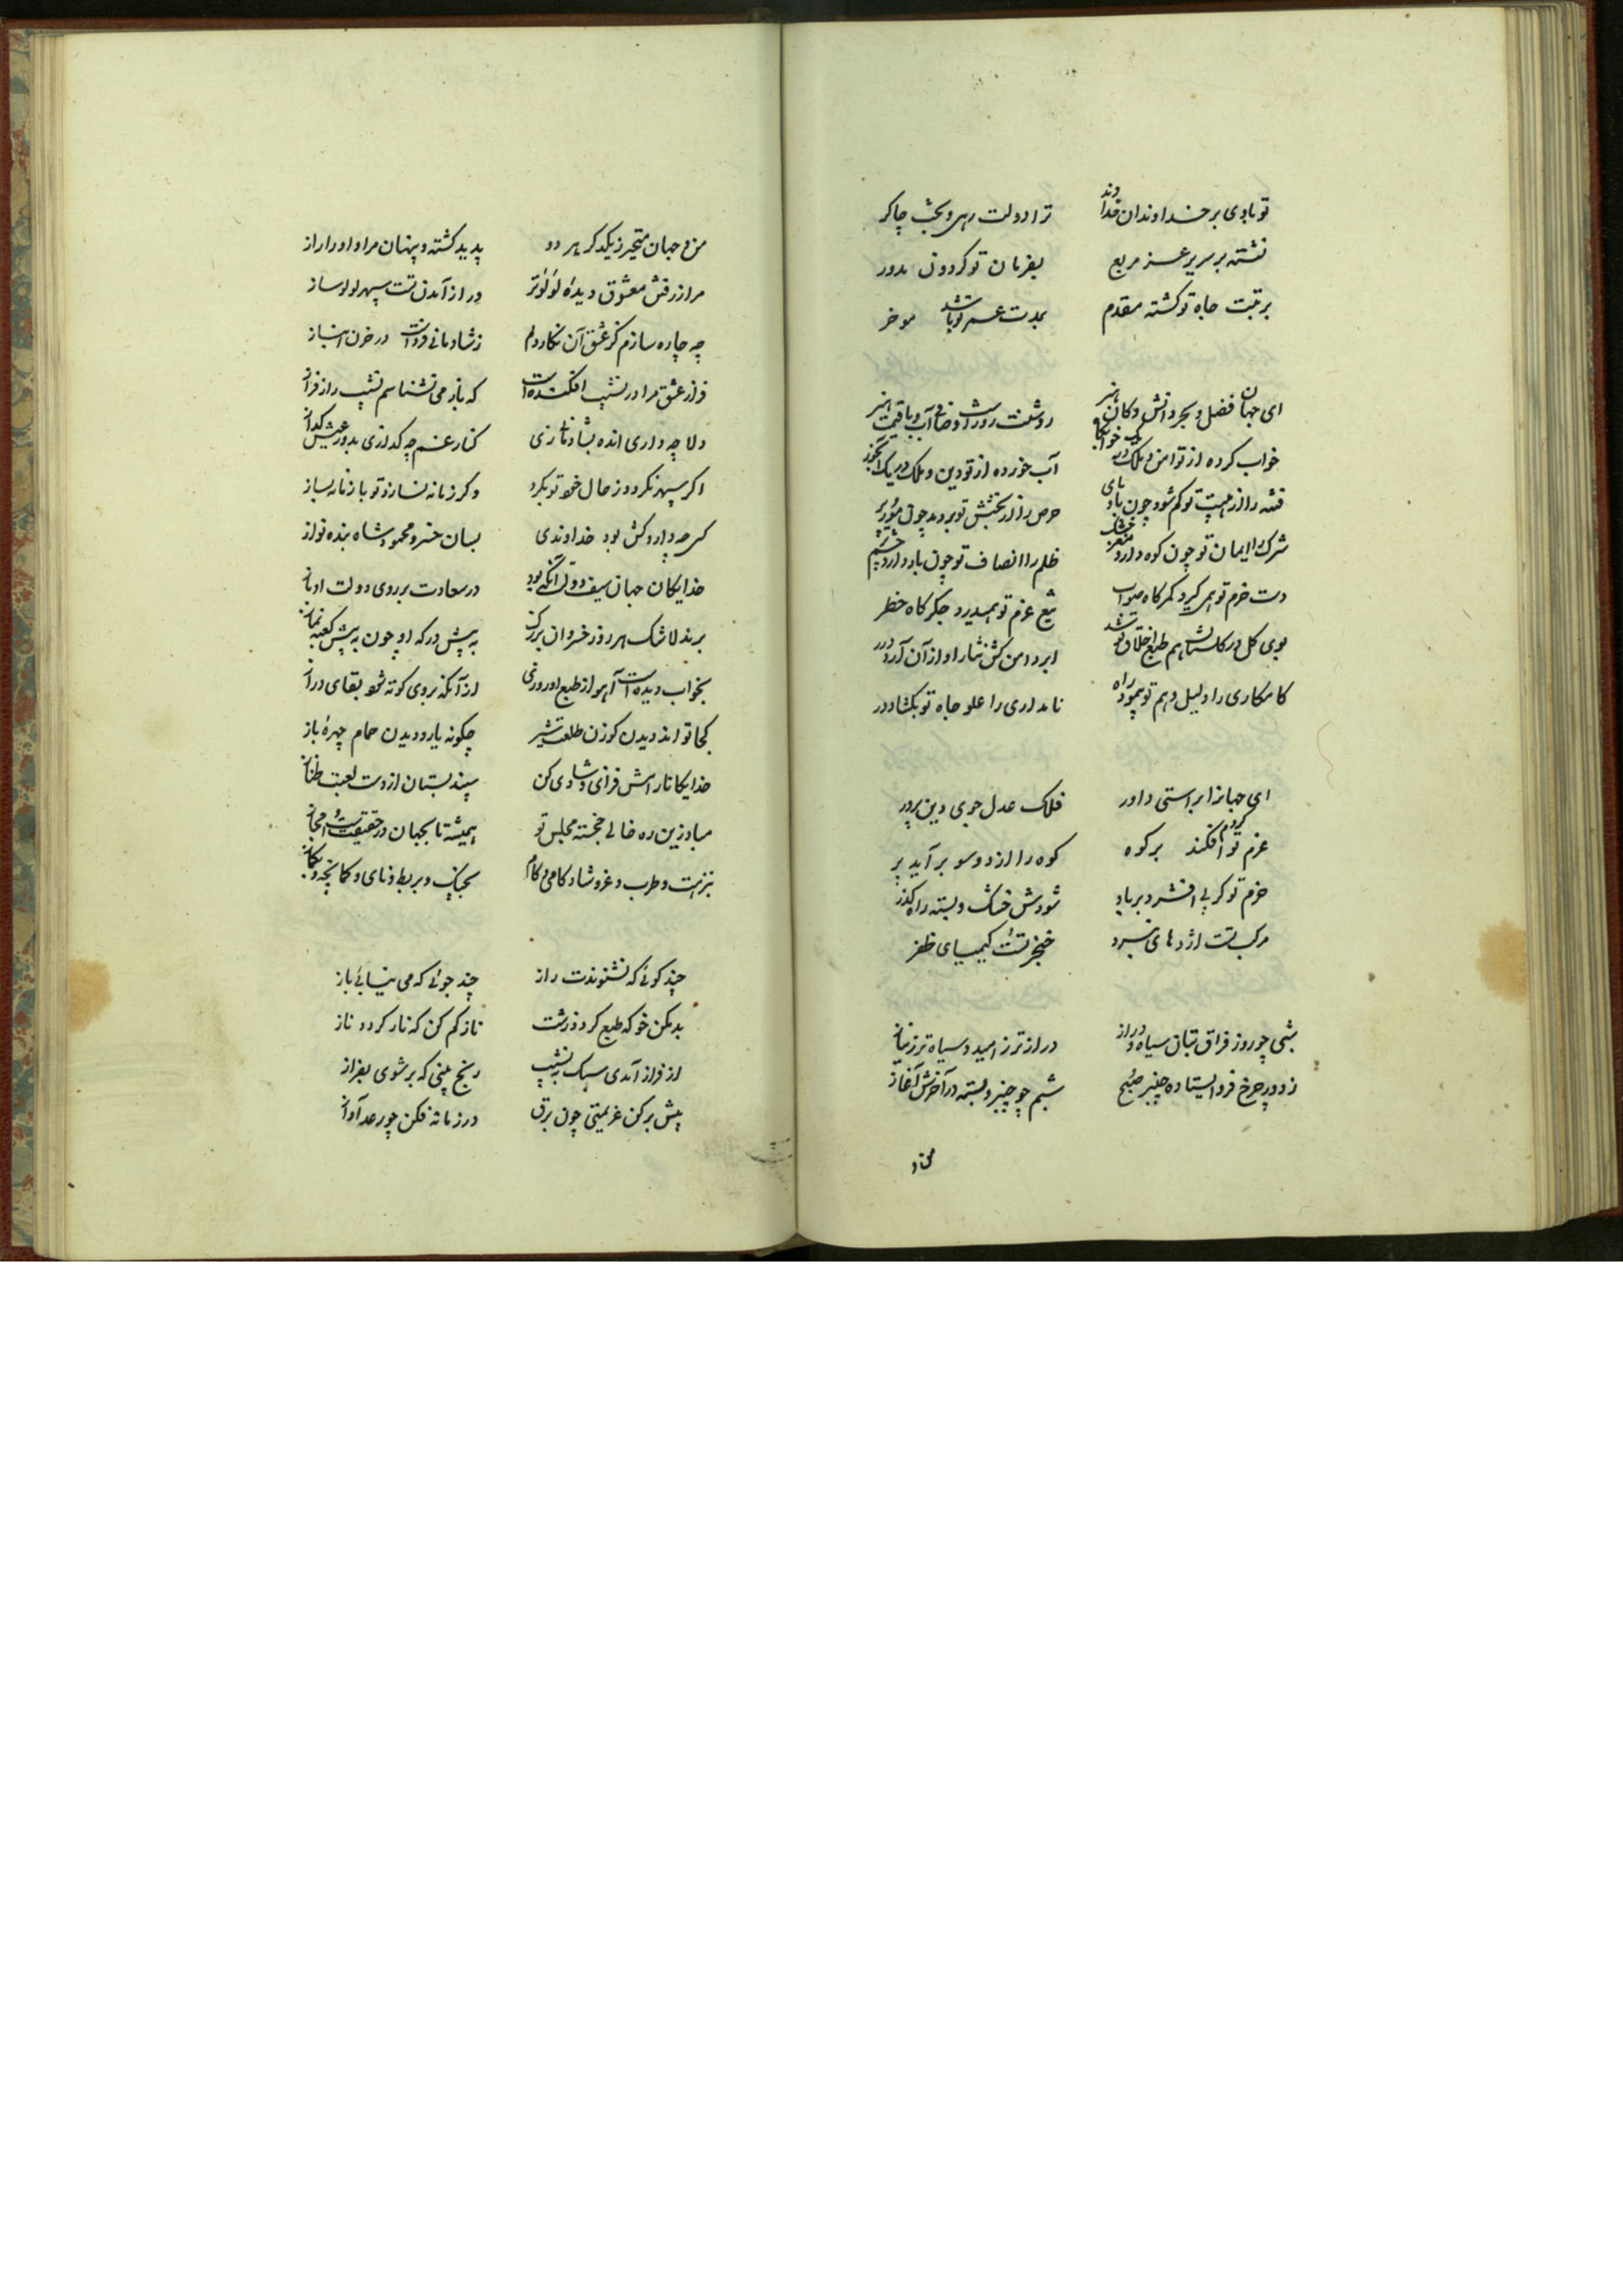 تو بادی بر خداوندان خداوند ترا دولت رهی و بخت چاکر
نشسته بر سریر عز مربع بفرمان تو گردون مدور
برتبت جاه تو گشته مقدم بمدت عمر تو باشد موخر
ای جهان فضل و بحر دانش و کان هنر
خواب کرده از تو امن و ملک در یک خوابگاه آب خورده از تو دین و ملک در یک آبخور
فتنه را از هیبت تو گم شود چون باد پای حرص را از بخشش تو بر دمد چون مور پر
شرک را ایمان تو چون کوه دارد خشک مغز ظلم را انصاف تو چون باد دارد چشم
دست حزم تو همی گیرد کمرگاه صواب تیغ عزم تو همی درد جگرگاه خطر
بوی گل در گلستان هم طبع اخلاق تو شد ابر دامن کش نثار او از آن آرد درر
کامکاری را دلیل وهم تو بنمود راه نامداری را علو جاه تو بگشاد در
ای جهانرا براستی داور فلک عدل جوی دین پرور
عزم تو گر دم افکند بر کوه کوه را از دو سو بر آید پر
حزم تو گر پی افشرد بر باد شودش خشک و بسته راه گذر
مرکب تست اژدهای نبرد خنجر تست کیمیای ظفر
شبی چو روز فراق بتان سیاه و دراز درازتر ز امید و سیاه تر ز نیاز
ز دور چرخ فرو ایستاده چنبر صبح شبم چو چنبر بسته در آخرش آغاز
من و جهان متحیر ز یکدگر هر دو پدید گشته و پنهان مرا و او را راز
مرا ز رفتن معشوق دیده لؤلؤتر ورا ز آمدن تست سپهر لولوساز
چه چاره سازم کز عشق آن نگار دلم ز شادمانی فردست و در خزن انباز
فراز عشق مرا در نشیب افکنده است که باز می نشناسم نشیب را ز فراز
دلا چه داری انده بشادمانا زی کنار غم چه گدازی بدور عیش گداز
اگر سپهر نگردد ز حال خود تو بگرد وگر زمانه نسازد تو با زمانه بساز
کسی چه دارد کش بود خداوندی بسان خسرو محمود شاه بنده نواز
خدایگان جهان سیف دولت آنکه بود در سعادت بر روی دولت او باز
برند لاشک هر روز خسروان بزرگ به پیش درگه او چون به پیش کعبه نماز
بخواب دیده است آهو از طبع او روزی از آنکه بروی کوته شود بقای دراز
کجا تواند دیدن گوزن طلعت شیر چگونه یارد دیدن حمام چهره باز
خدایگانا رامش فزای و شادی کن نبیذ بستان از دست لعبت طناز
مباد زین ره خالی خجسته مجلس تو همیشه تا بجهان در حقیقت است و مجاز
بنزهت و طرب و عز و شادکامی و کام بچنگ و بربط و نای و کمانچه و بگماز
چند گوئی که نشنوندت راز چند جوئی که می نیابی باز
بد مکن خو که طبع گردد زشت ناز کم کن که ناز گردد ناز
از فراز آمدی سبک به نشیب رنج بینی که بر شوی بفراز
بیش بر کن عزیمتی چون برق در زمانه فکن چو رعد آواز
من و